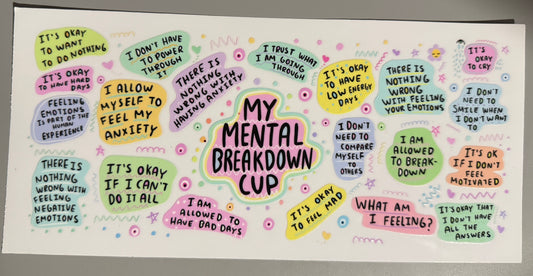 IT'S OKAY
TO WANT
TO DO NOTHING
IT'S OKAY
TO HAVE HARD
DAYS
FEELING
EMOTIONS
IS PART OF THE
HUMAN
EXPERIENCE
THERE IS
NOTHING
WRONG WITH
FEELING
NEGATIVE
EMOTIONS
I DON'T HAVE
TO POWER
THROUGH
IT
I ALLOW
MYSELF TO
FEEL MY
ANXIETY
IT'S OKAY
IF I CAN'T
DO IT ALL
THERE IS
NOTHING
WRONG WITH
HAVING ANXIETY
I AM
ALLOWED TO
HAVE BAD DAYS
I TRUST WHAT
I AM GOING
THROUGH
MY
MENTAL
BREAKDOWN
CUP
IT'S OKAY
TO HAVE
LOW ENERGY
DAYS
I DON'T
NEED TO
COMPARE
MYSELF
TO
OTHERS
IT'S OKAY
TO FEEL MAD
THERE IS
NOTHING
WRONG
WITH FEELING
YOUR EMOTIONS
I AM
ALLOWED
TO BREAK-
DOWN
WHAT AM
I FEELING?
IT'S
OKAY
TO CRY
I DON'T
NEED TO
SMILE WHEN
I DON'T WANT
TO
IT'S OK
IF I DON'T
FEEL
MOTIVATED
IT'S OKAY THAT
I DON'T HAVE
ALL THE
ANSWERS